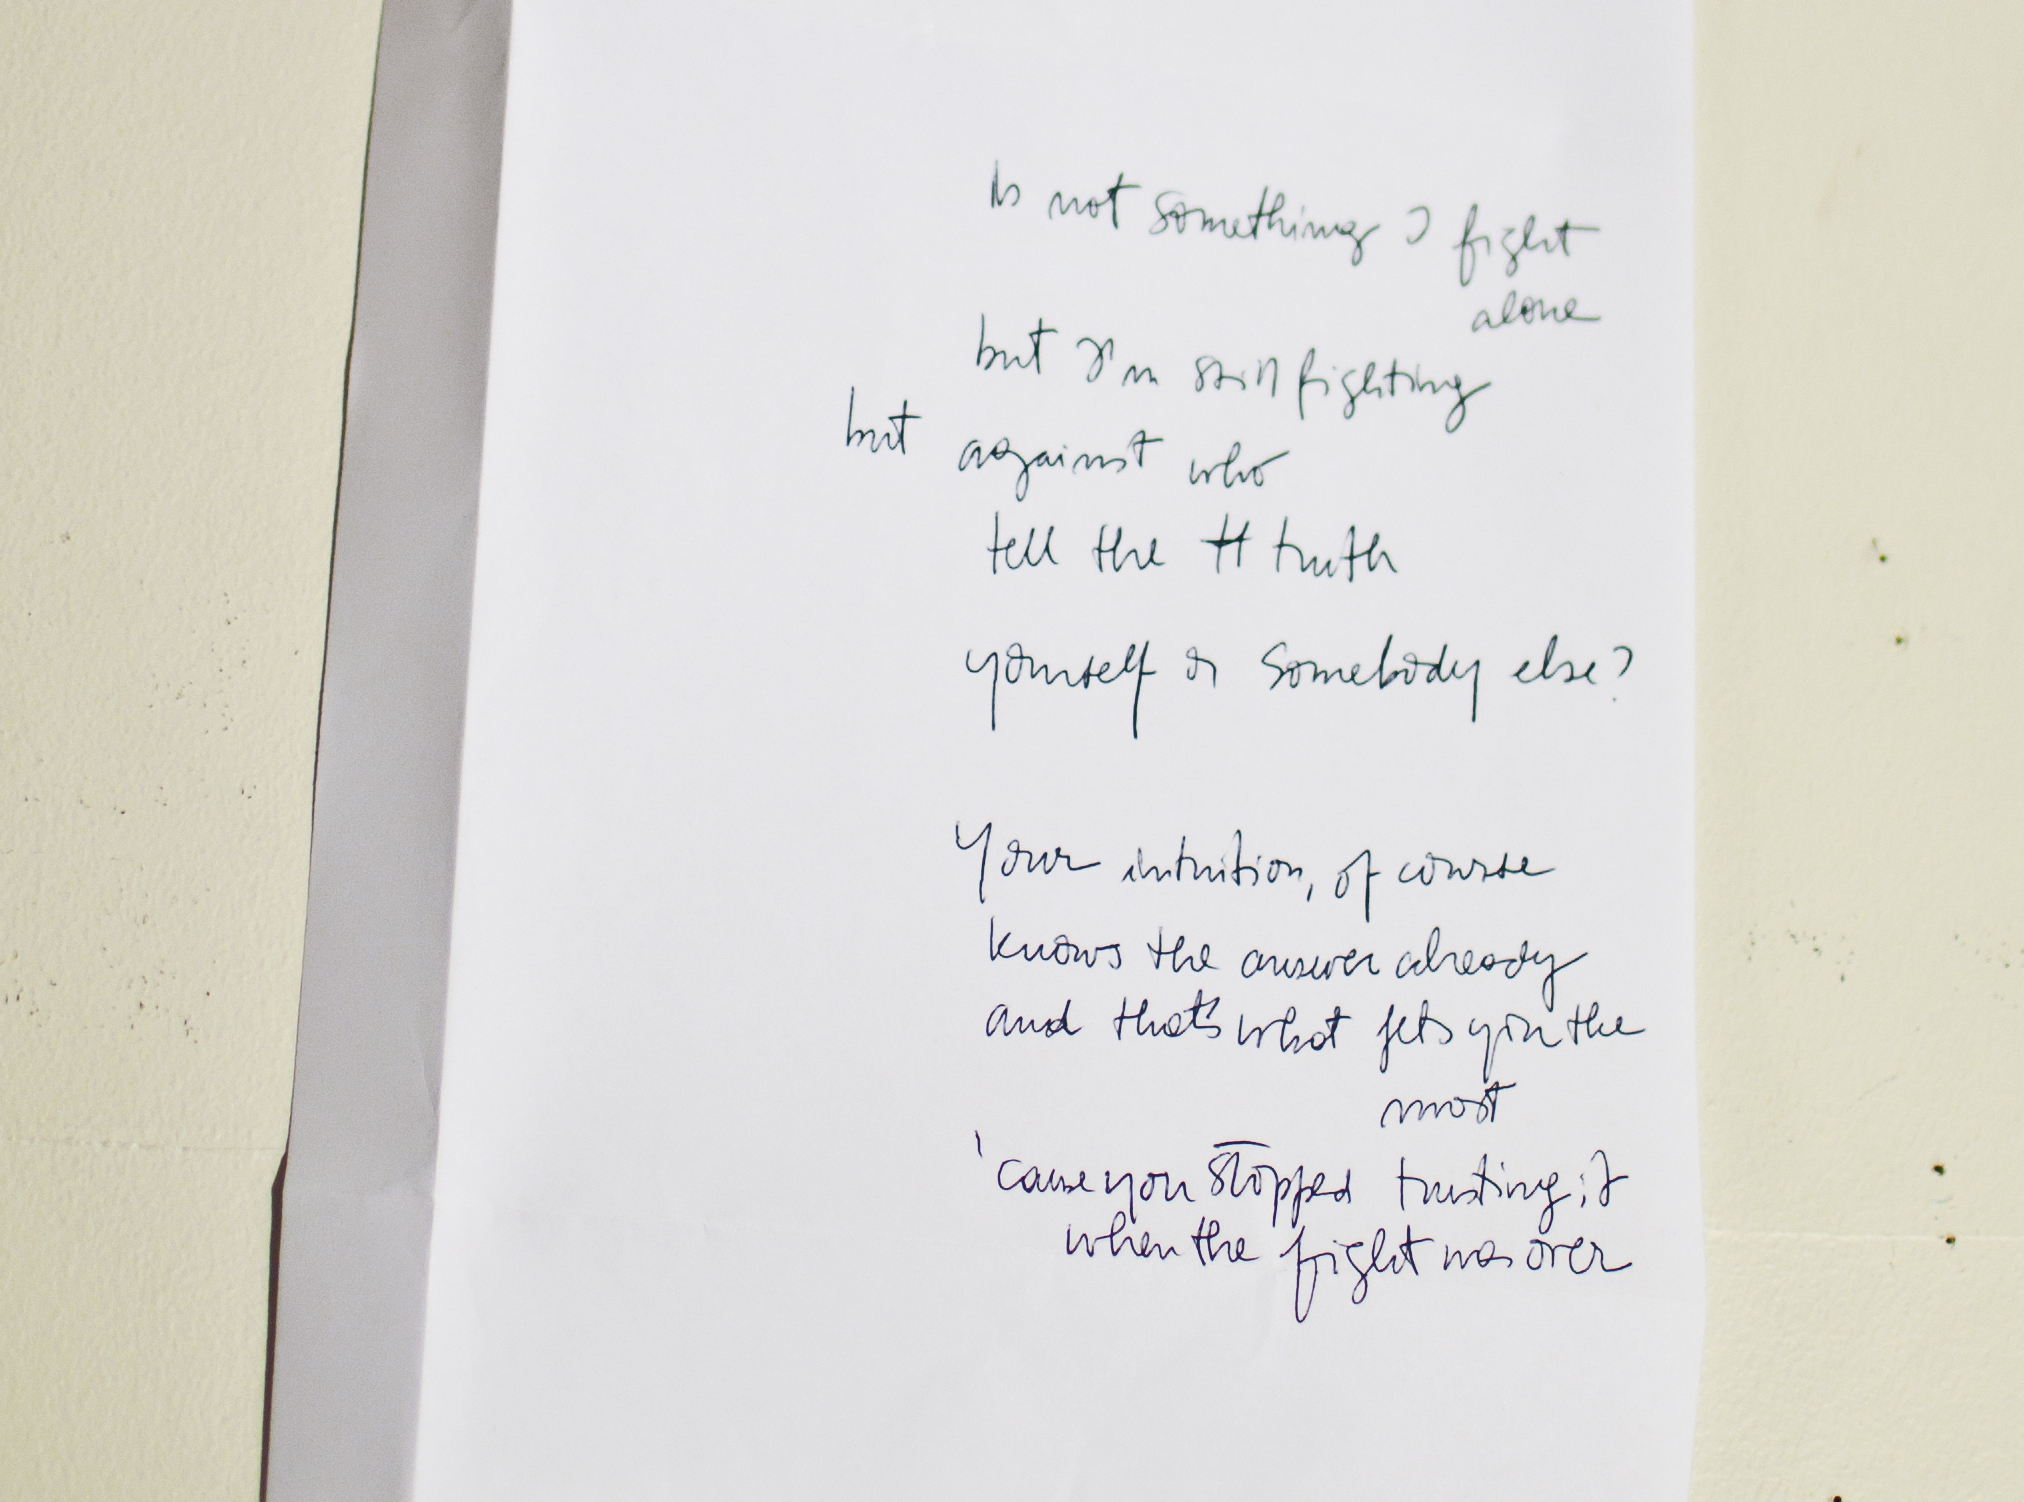 Is not something I fight
alone
but I'm still fighting
but against who
tell the tt truth
yourself or somebody else?
Your intuition, of course
knows the answer already
and that's what gets you the
most
'cause you stopped trusting it
when the fight was over